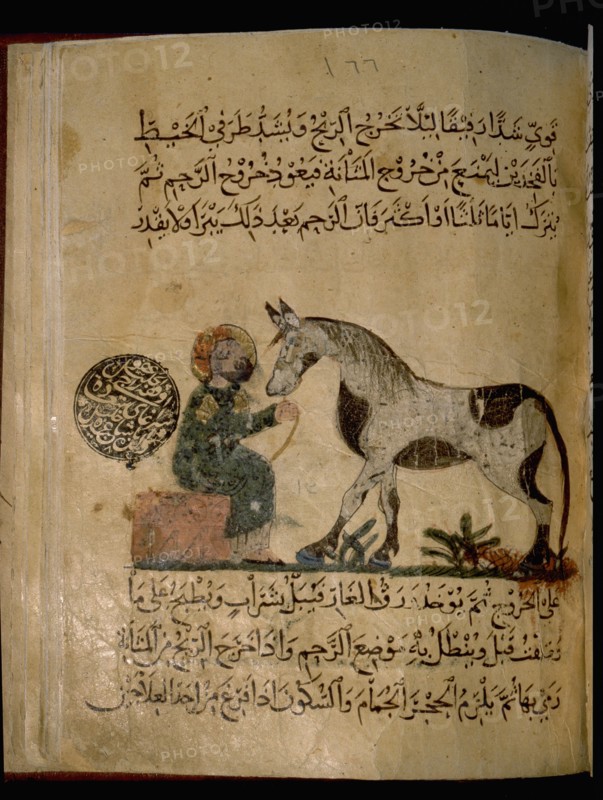 ١٦٦
قوي شدا رفيقا ليلا تخرج الريح ويشد طرفي الخيط
بالفخذين ليمنع من خروج المثانة فيعود خروج الرحم ثم
يترك اياما ثلثا او اكثر فان الرحم بعد ذلك يبرا ولا يقدر
على الخروج ثم يوخذ ورق الغار فيبل بشراب ويطبخ على ما
وصفت قبل وينطل به موضع الرحم واذا خرج الريح من المثانة
رمي بها ثم يلزم الحجر الجمام والسكون اذا فرغ من احد العلاجين
PHOTO12